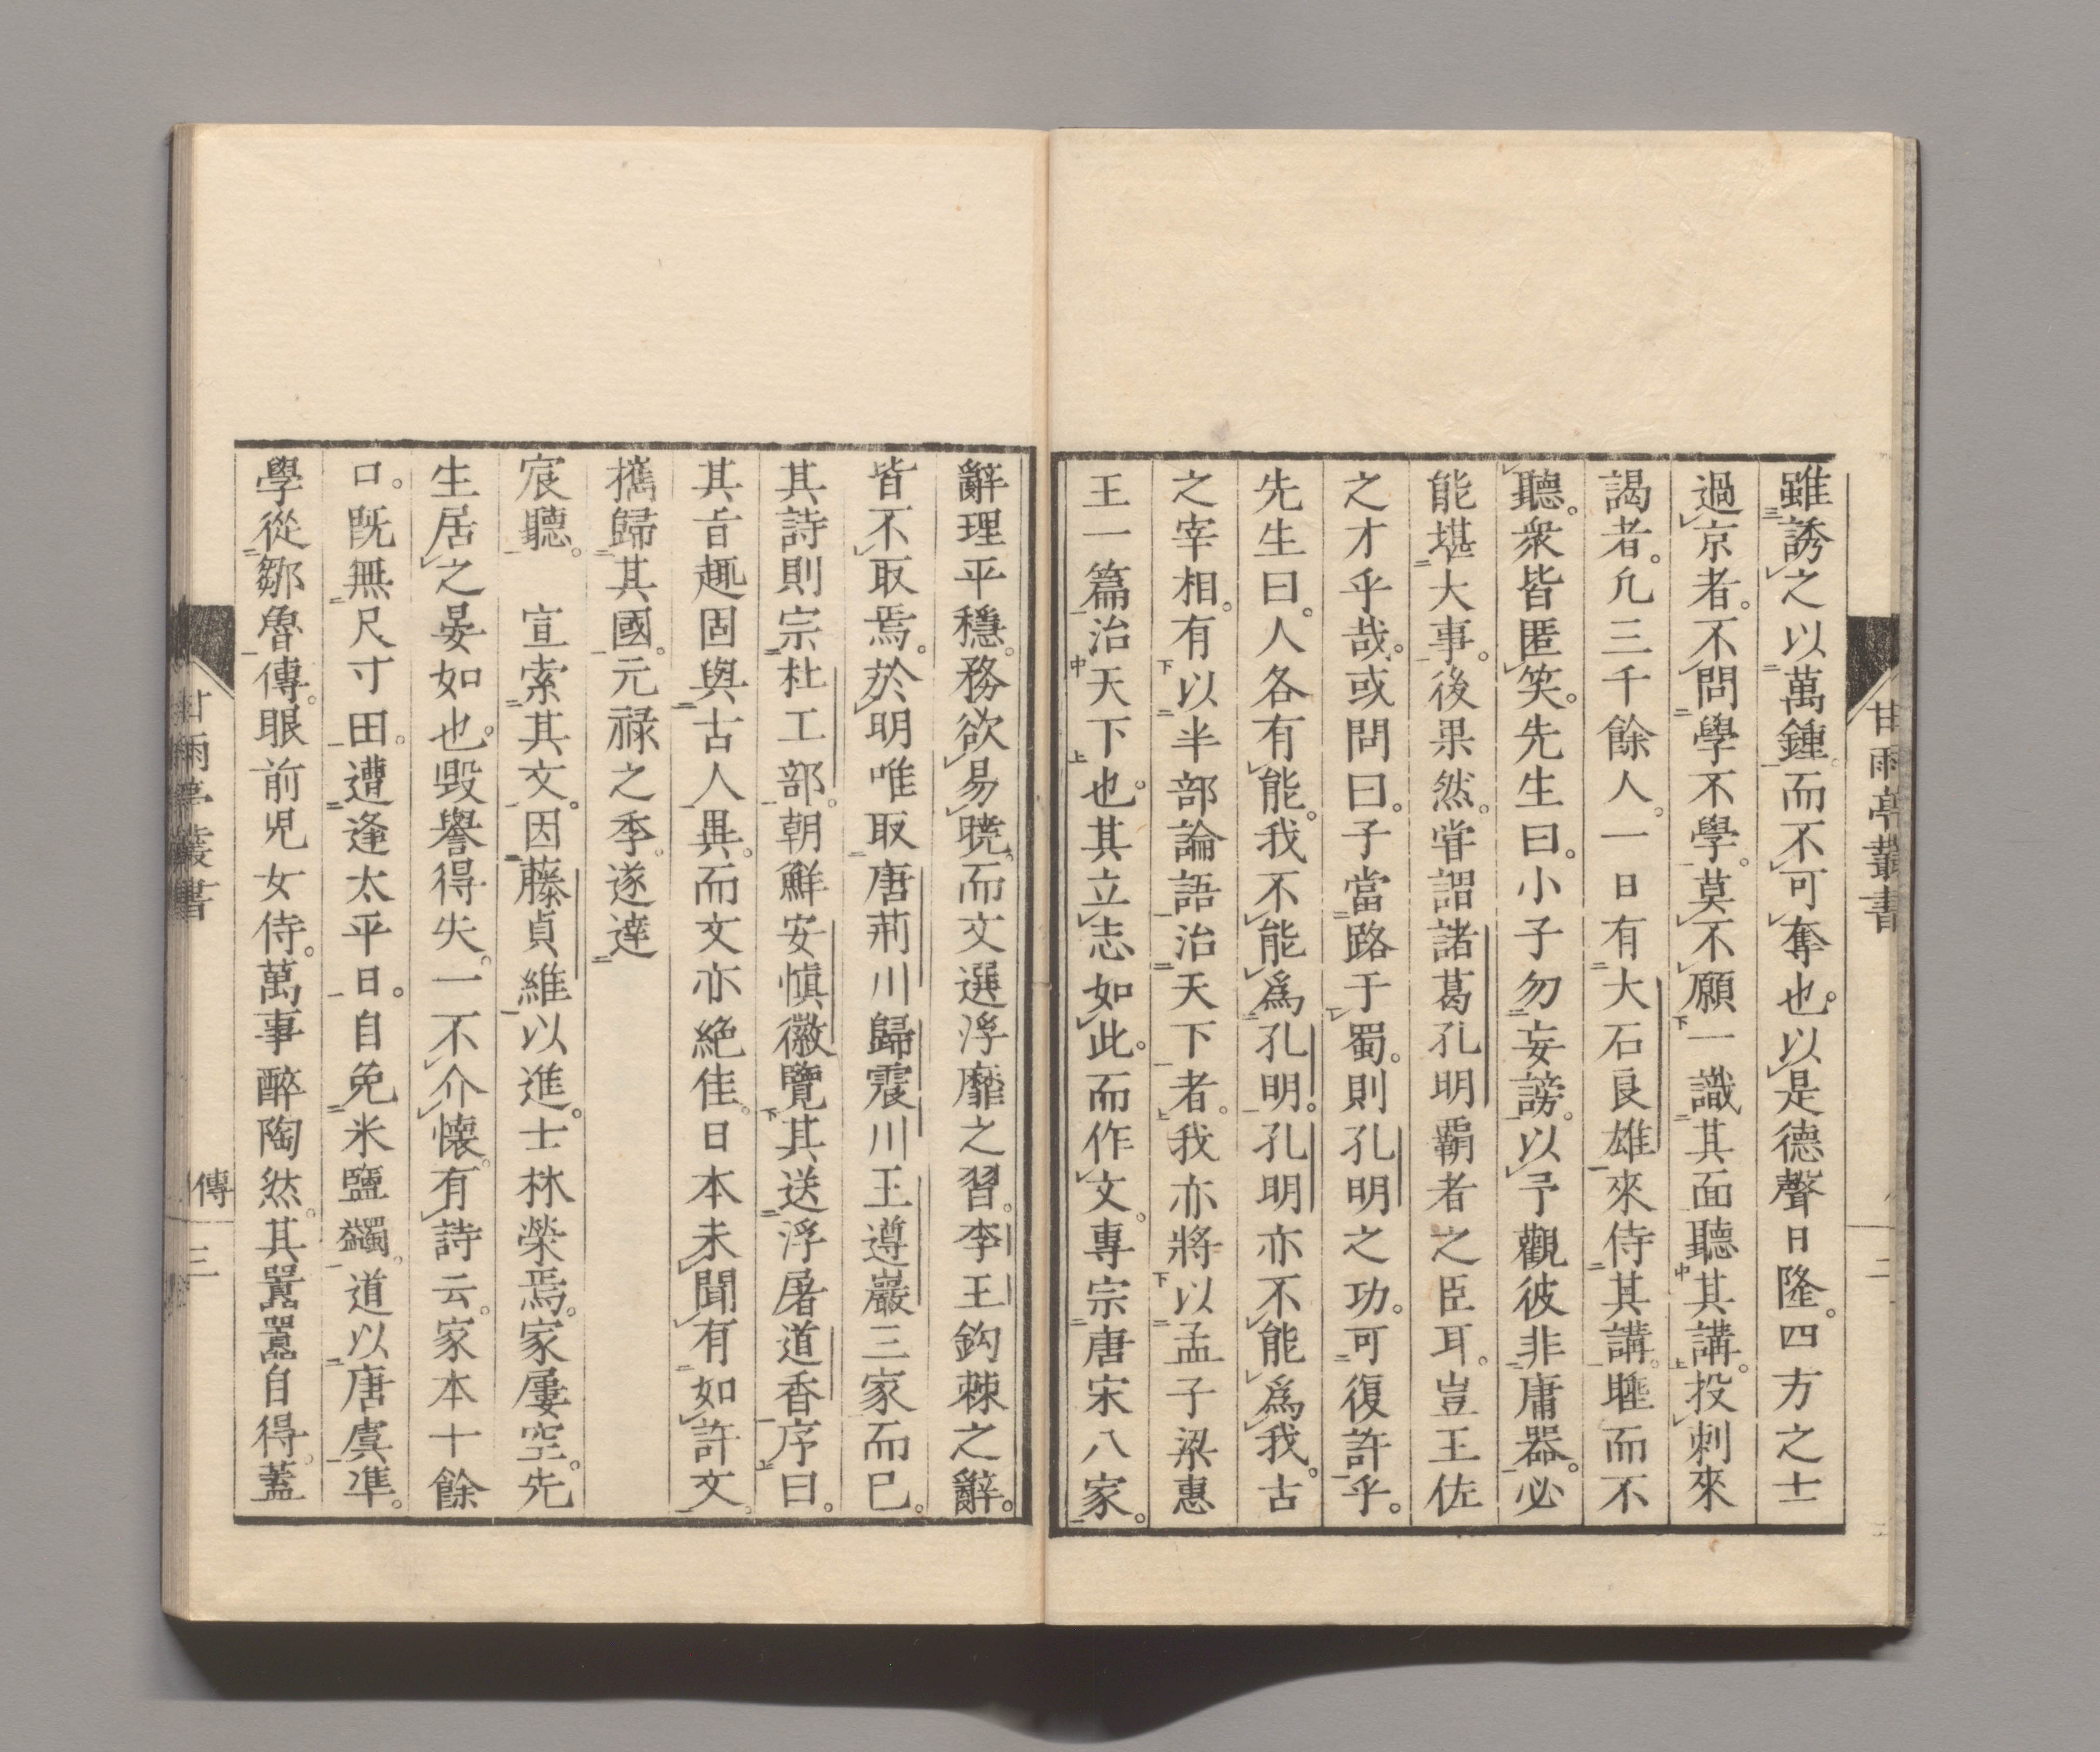 甘雨亭叢書
二
雖誘之以萬鍾。而不可奪也。以是德聲日隆。四方之士
過京者。不問學不學。莫不願一識其面聽其講。投刺來
謁者。凡三千餘人。一日有大石良雄來侍其講。睡而不
聽。衆皆匿笑。先生曰。小子勿妄謗。以予觀彼非庸器。必
能堪大事。後果然。嘗謂諸葛孔明覇者之臣耳。豈王佐
之才乎哉。或問曰。子當路于蜀。則孔明之功。可復許乎。
先生曰。人各有能。我不能爲孔明。孔明亦不能爲我。古
之宰相。有以半部論語治天下者。我亦將以孟子梁惠
王一篇治天下也。其立志如此。而作文。專宗唐宋八家。
辭理平穩。務欲易曉。而文選浮靡之習。李王鈎棘之辭。
皆不取焉。於明唯取唐荊川歸震川王遵巖三家而已。
其詩則宗杜工部。朝鮮安愼徽覽其送浮屠道香序曰。
其旨趣固與古人異。而文亦絶佳。日本未聞有如許文。
攜歸其國。元祿之季。遂達
宸聽。 宣索其文。因藤貞維以進。士林榮焉。家屢空。先
生居之晏如也。毀譽得失。一不介懷。有詩云。家本十餘
口。既無尺寸田。遭逢太平日。自免米鹽蠲。道以唐虞準。
學從鄒魯傳。眼前児女侍。萬事醉陶然。其囂囂自得。蓋
甘雨亭叢書
傳
三